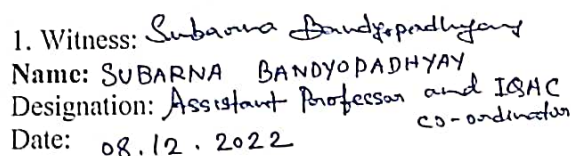 1. Witness: Subarna Bandyopadhyay
Name: SUBARNA BANDYOPADHYAY
Designation: Assistant Professor and IQAC
co-ordinator
Date: 08.12.2022